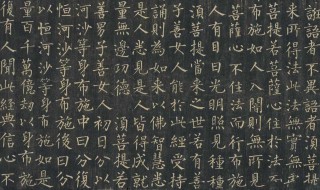 誑語者不異語者須菩提
來所得法此法無實無
菩提若菩薩心住於法
布施如人入闇則無所見
菩薩心不住法而行布施
人有目日光明照見種種
須菩提當來之世若有善
子善女人能於此經受持
誦則為如來以佛智慧悉
是人悉見是人皆得成就
量無邊功德　須菩提若
善男子善女人初日分以
河沙等身布施中日分復
恒河沙等身布施後日分
以恒河沙等身布施如是
量百千萬億劫以身布施
復有人聞此經典信心不